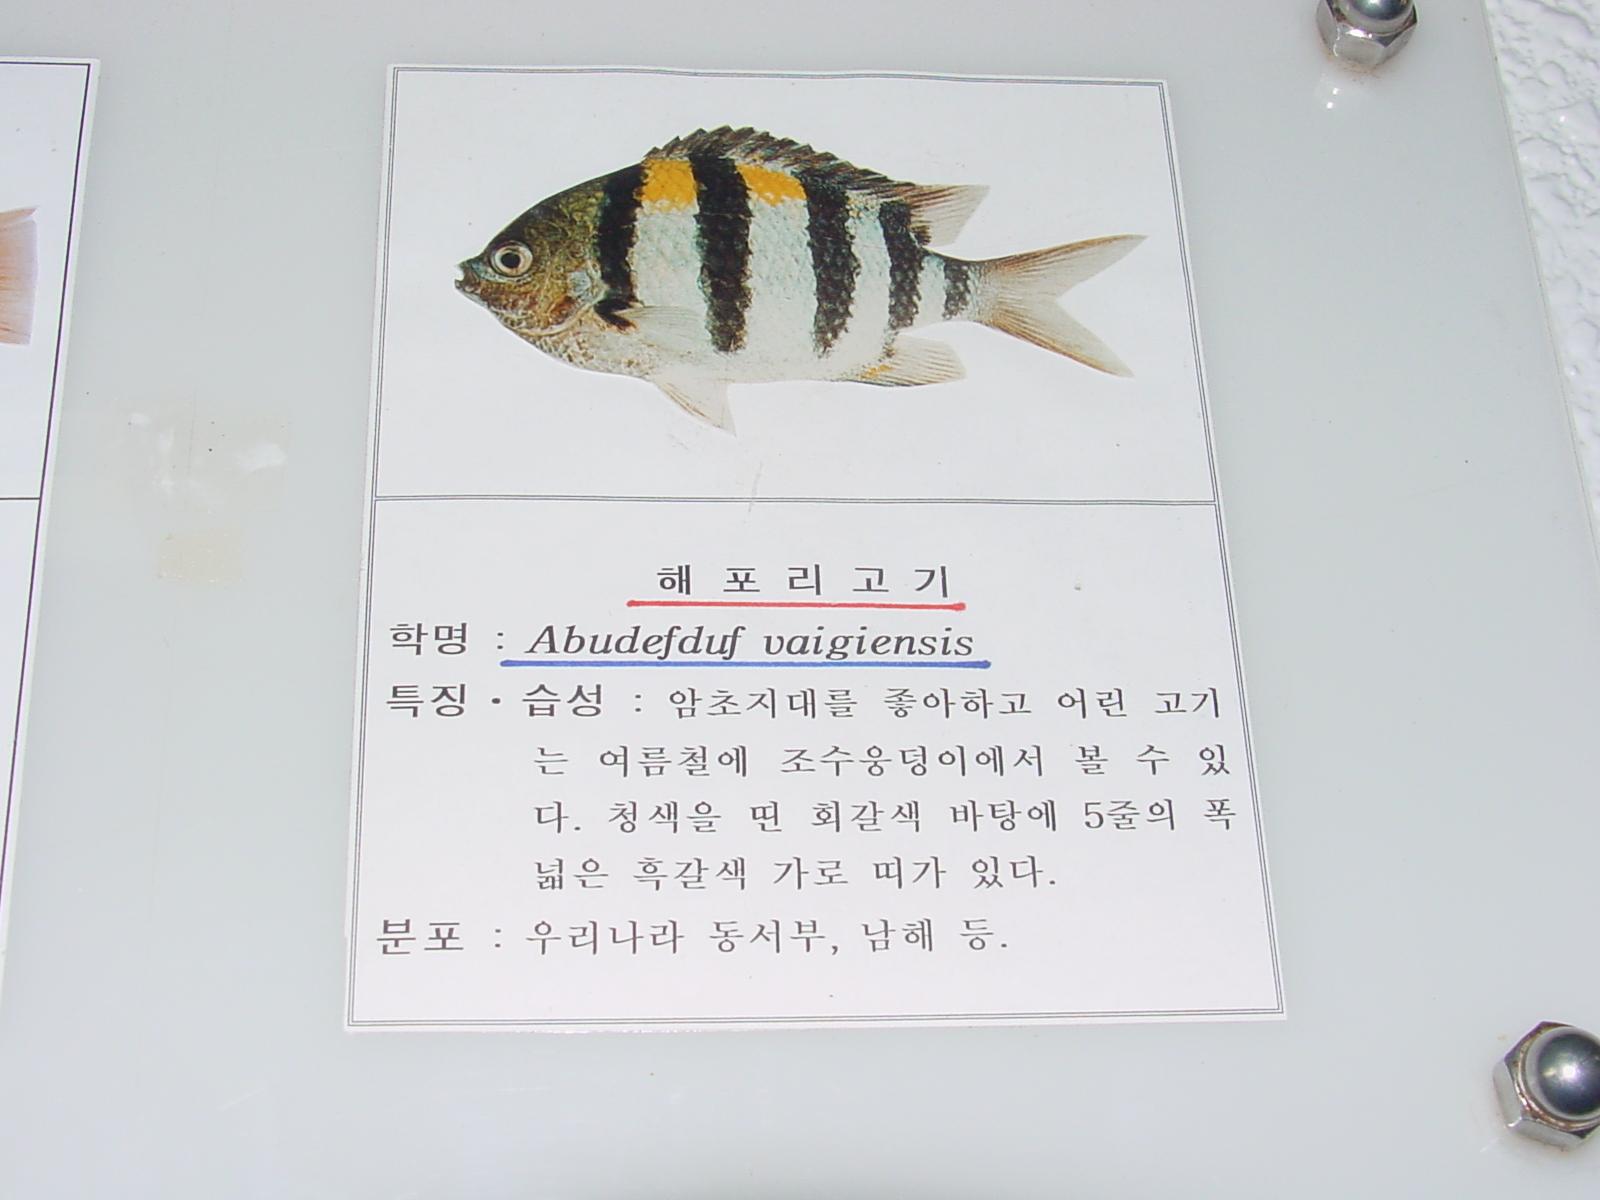 해포리고기
학명 : Abudefduf vaigiensis
특징·습성 : 암초지대를 좋아하고 어린 고기
는 여름철에 조수웅덩이에서 볼 수 있
다. 청색을 띤 회갈색 바탕에 5줄의 폭
넓은 흑갈색 가로 띠가 있다.
분포 : 우리나라 동서부, 남해 등.